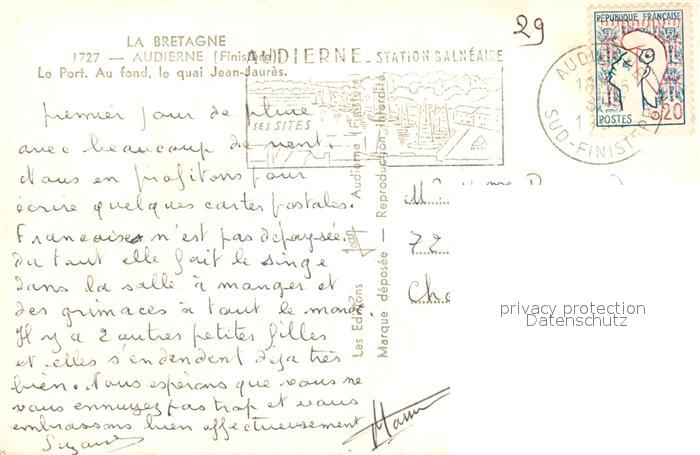 LA BRETAGNE
1727 — AUDIERNE (Finistère)
Le Port. Au fond, le quai Jean-Jaurès.
AUDIERNE STATION BALNÉAIRE
SES SITES
29
RÉPUBLIQUE FRANÇAISE
POSTES 0,20
AUDIERNE
18
SUD-FINISTERE
premier jour de pluie
avec beaucoup de vent.
Nous en profitons pour
écrire quelques cartes postales.
Françoise n'est pas dépaysée
du tout elle fait le singe
dans la salle à manger et
des grimaces à tout le monde.
Il y a 2 autres petites filles
et elles s'endendent déja très
bien. Nous espérons que vous ne
vous ennuyez pas trop et vous
embrassons bien affectueusement
Suzanne
Les Editions
Audierne (Finistère)
Marque déposée
Reproduction interdite
M
72
Cha
privacy protection
Datenschutz